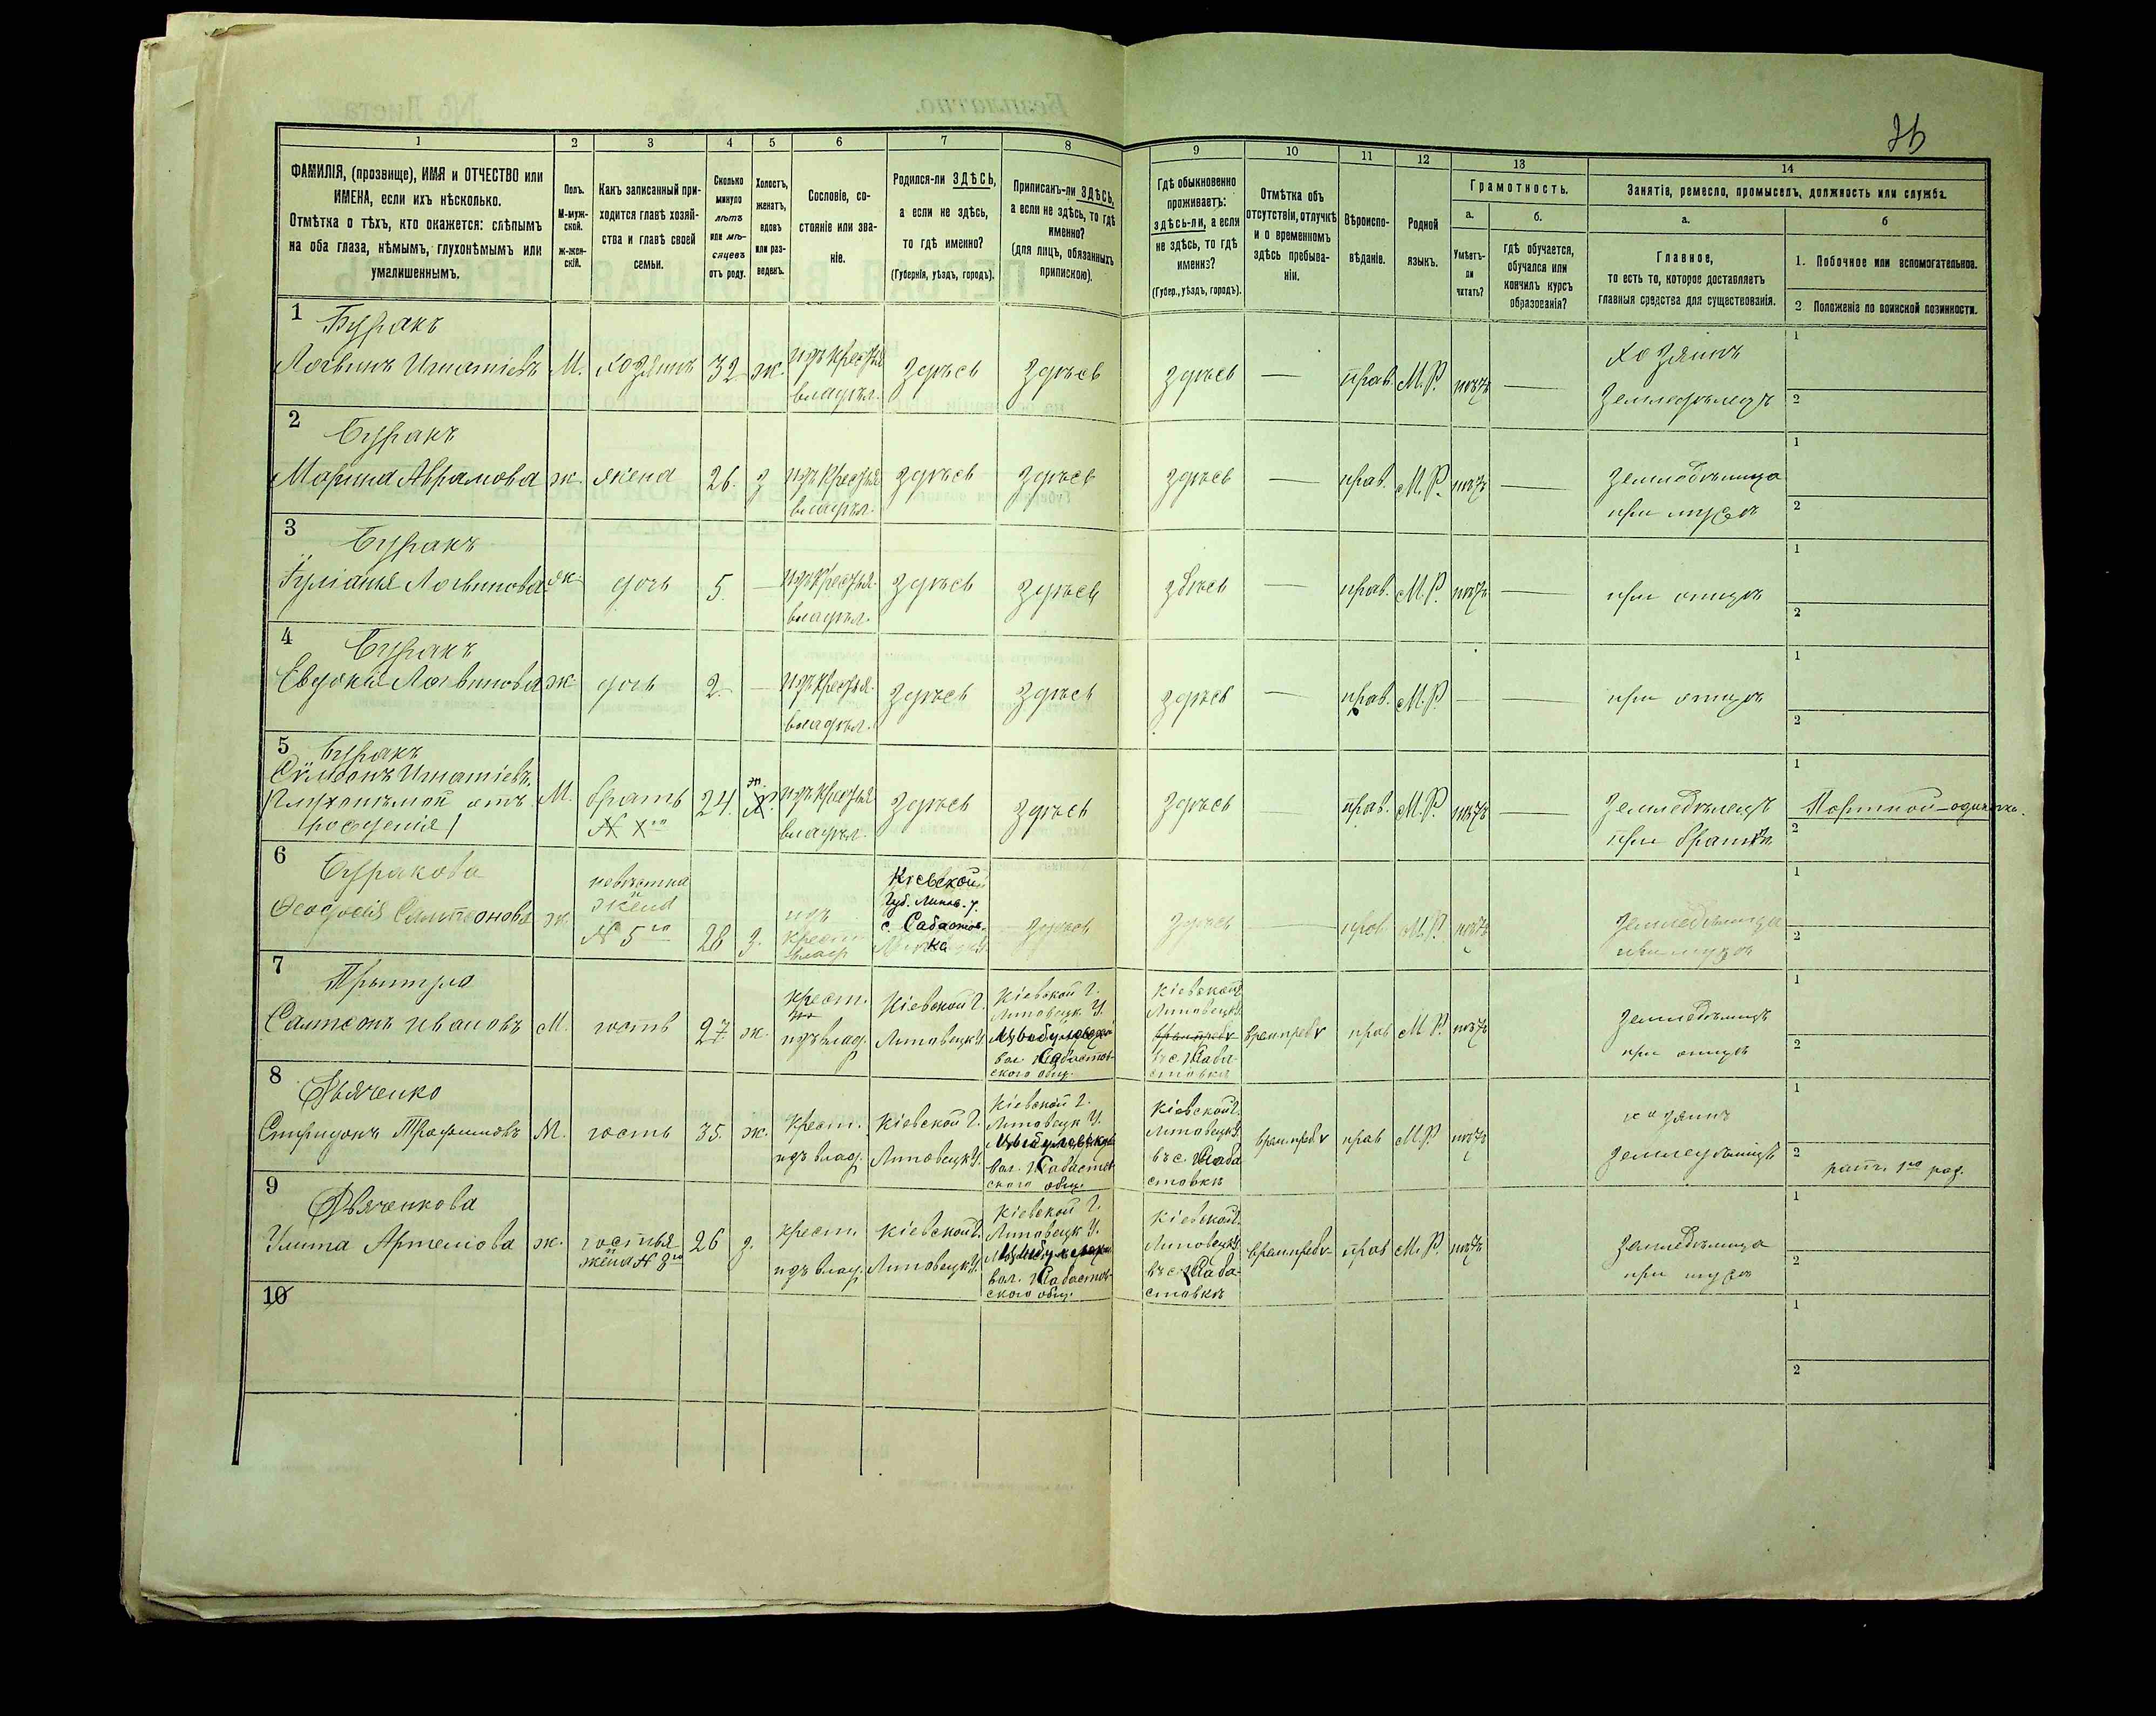 36
1 2 3 4 5 6 7 8 9 10 11 12 13 14
ФАМИЛІЯ, (прозвище), ИМЯ и ОТЧЕСТВО или
ИМЕНА, если ихъ нѣсколько.
Отмѣтка о тѣхъ, кто окажется: слѣпымъ
на оба глаза, нѣмымъ, глухонѣмымъ или
умалишеннымъ.
Полъ.
М-муж-
ской.
Ж-жен-
скій.
Какъ записанный при-
ходится главѣ хозяй-
ства и главѣ своей
семьи.
Сколько
минуло
лѣтъ
или мѣ-
сяцевъ
отъ роду.
Холостъ,
женатъ,
вдовъ
или раз-
веденъ.
Сословіе, со-
стояніе или зва-
ніе.
Родился-ли ЗДѢСЬ,
а если не здѣсь,
то гдѣ именно?
(Губернія, уѣздъ, городъ).
Приписанъ-ли ЗДѢСЬ,
а если не здѣсь, то гдѣ
именно?
(для лицъ, обязанныхъ
припискою).
Гдѣ обыкновенно
проживаетъ:
здѣсь-ли, а если
не здѣсь, то гдѣ
именно?
(Губер., уѣздъ, городъ).
Отмѣтка объ
отсутствіи, отлучкѣ
и о временномъ
здѣсь пребыва-
ніи.
Вѣроиспо-
вѣданіе.
Родной
языкъ.
Грамотность.
а.
Умѣетъ-
ли
читать?
б.
гдѣ обучается,
обучался или
кончилъ курсъ
образованія?
Занятіе, ремесло, промыселъ, должность или служба.
а.
Главное,
то есть то, которое доставляетъ
главныя средства для существованія.
б
1. Побочное или вспомогательное.
2 Положеніе по воинской повинности.
1 Буракъ
Логвинъ Игнатіевъ М. хозяинъ 32 ж. изъ крестья владѣл. здѣсь здѣсь здѣсь — прав. М.Р. нѣтъ — хозяинъ земледѣлецъ 1 2
2 Буракъ
Марина Аврамова ж. жена 26. з изъ крестья владѣл. здѣсь здѣсь здѣсь — прав. М.Р. нѣтъ — земледѣлица при мужѣ 1 2
3 Буракъ
Логвинова ж дочь 5. — изъ крестья. владѣл. здѣсь здѣсь здѣсь — прав. М.Р. нѣтъ — при отцѣ 1 2
4 Буракъ
Евдокія Логвинова ж дочь 2 — изъ крестья. владѣл. здѣсь здѣсь здѣсь — прав. М.Р. — — при отцѣ 1 2
5 Буракъ
Игнатіевъ.
/Глухонѣмой отъ М. братъ 24. ж. изъ крестья владѣл. здѣсь здѣсь здѣсь — прав. М.Р. нѣтъ — земледѣлецъ при братѣ 1 Портной-одиночка. 2
рожденія/
6 Буракова
Феодосія Самсонова ж. невѣстка и жена N 5го 28 з. изъ крест. влад Кіевской Губ. Липов. у. с. Сабастов- ка здѣсь здѣсь — прав. М.Р. нѣтъ земледѣлица при мужѣ 1 2
7
Самсонъ Ивановъ М. гость 27. ж. крест. изъ влад. Кіевской г. Липовецк у. Кіевской г. Липовецк у. вол. Сабастов- ского общ. Кіевской г. Липовецк у. въ с. Саба- стовкѣ врем. преб. прав М.Р. нѣтъ земледѣлецъ при отцѣ 1 2
8 Дьяченко
Спиридонъ Трофимовъ М. гость 35. ж. крест. изъ влад. Кіевской г. Липовецк у. Кіевской г. Липовецк у. вол. Сабастов- ского общ. Кіевской г. Липовецк у. въ с. Саба- стовкѣ врем. преб. прав М.Р. нѣтъ хозяинъ земледѣлецъ 1 2 ратн. 1го раз.
9 Дьяченкова
Улита Артемова ж. гостья и жена N 8го 26 з. крест. изъ влад. Кіевской г. Липовецк у. Кіевской г. Липовецк у. вол. Сабастов- ского общ. Кіевской г. Липовецк у. въ с. Саба- стовкѣ врем. преб. прав М.Р. нѣтъ земледѣлица при мужѣ 1 2
10 1 2